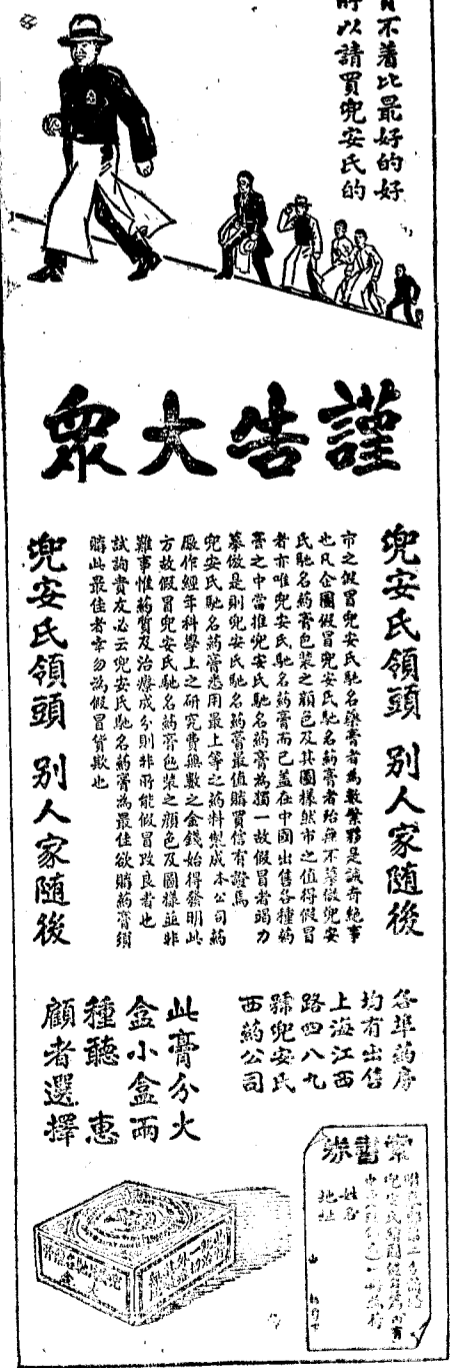 買不着比最好的好
所以請買兜安氏的
謹告大眾
兜安氏領頭 別人家隨後
市之假冒兜安氏馳名藥膏者為數繁夥是誠奇絕事
也凡企圖假冒兜安氏馳名藥膏者殆無不摹倣兜安
氏馳名藥膏包裝之顏色及其圖樣然市之值得假冒
者亦唯兜安氏馳名葯膏而已蓋在中國出售各種葯
膏之中當推兜安氏馳名葯膏為獨一故假冒者竭力
摹倣是則兜安氏馳名葯膏最值購買信有證焉
兜安氏馳名葯膏悉用最上等之葯料製成本公司葯
廠作經年科學上之研究費無數之金錢始得發明此
方故假冒兜安氏馳名葯膏包裝之顏色及圖樣並非
難事惟葯質及治療成分則非所能假冒改良者也
試詢貴友必云兜安氏馳名葯膏為最佳欲購葯膏須
購此最佳者幸勿為假冒貨欺也
兜安氏領頭 別人家隨後
各埠葯房
均有出售
上海江西
路四八九
號兜安氏
西葯公司
此膏分大
盒小盒兩
種聽 惠
顧者選擇
索書券
姓名
地址